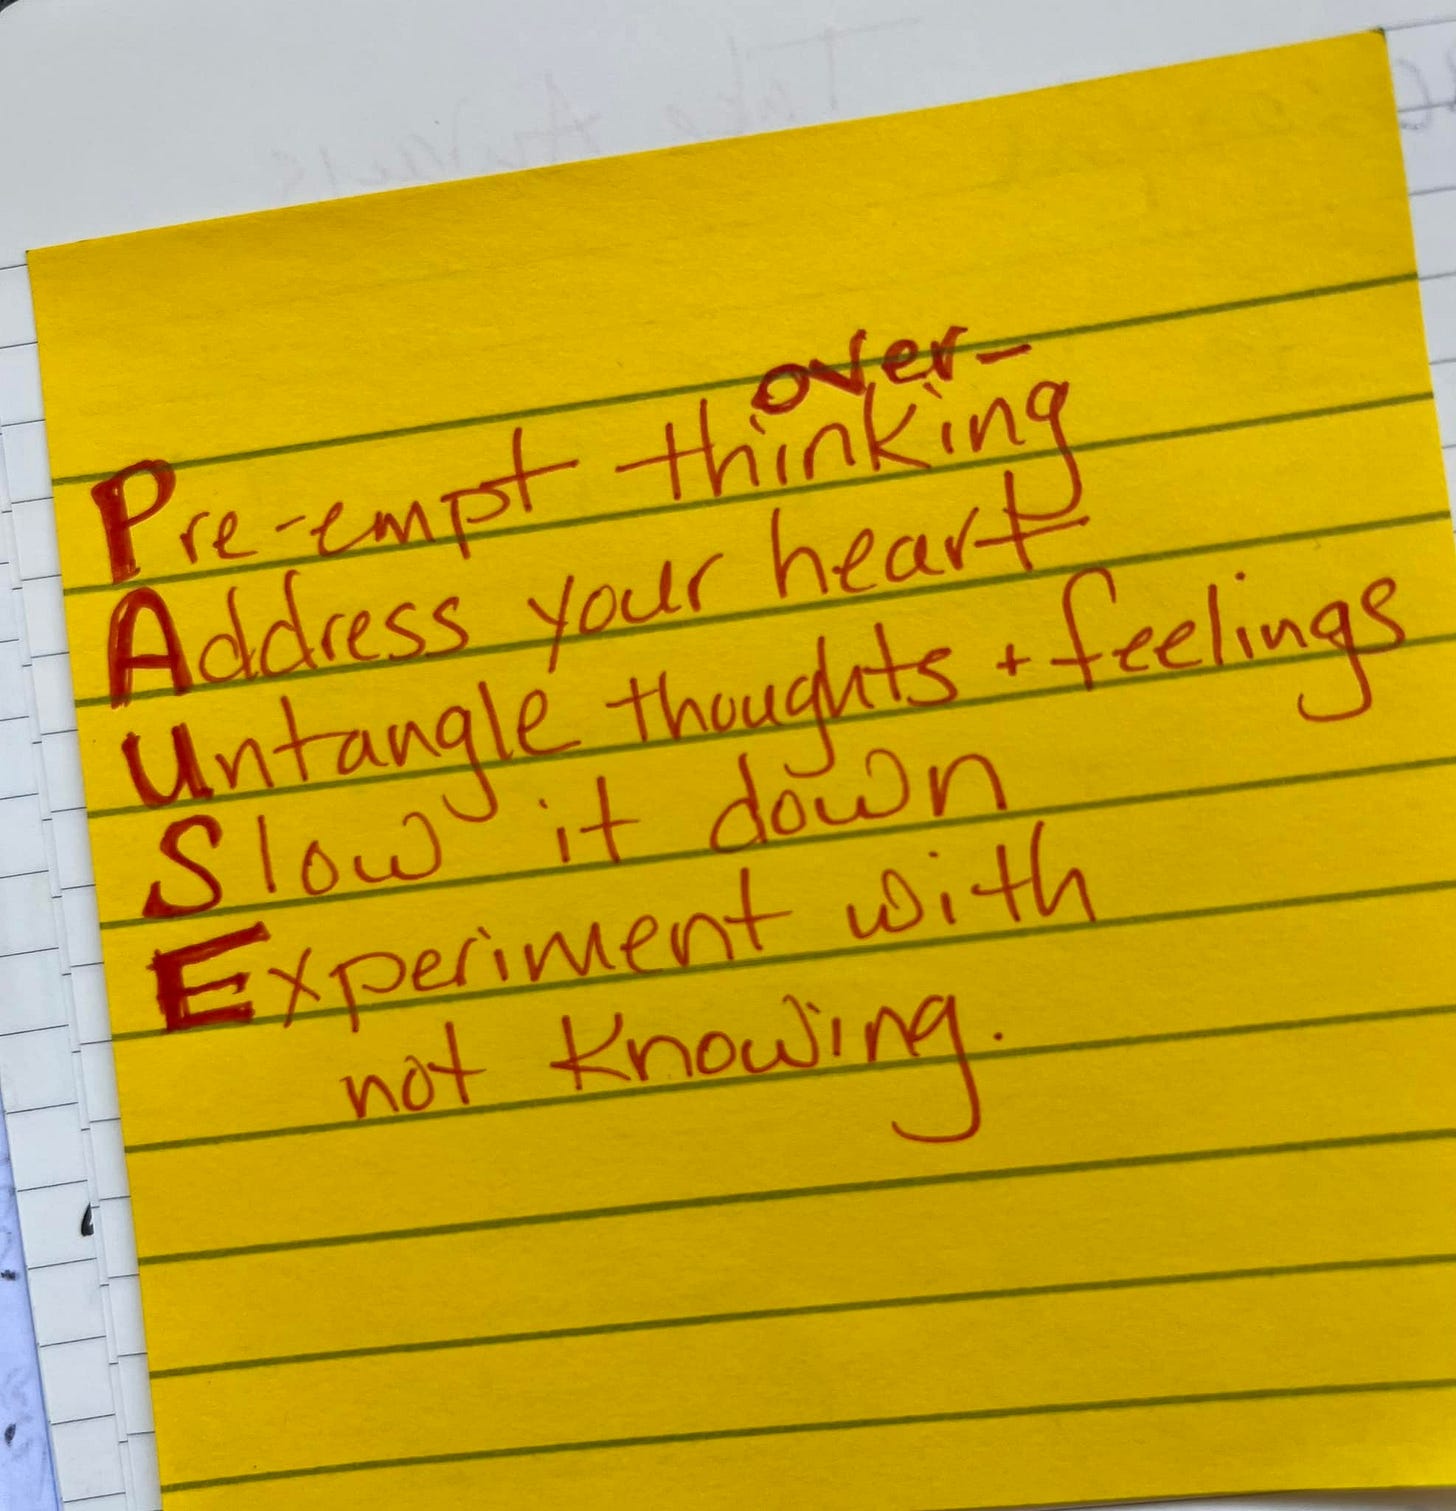 over-
Pre-empt thinking
Address your heart
Untangle thoughts + feelings
Slow it down
Experiment with
not knowing.